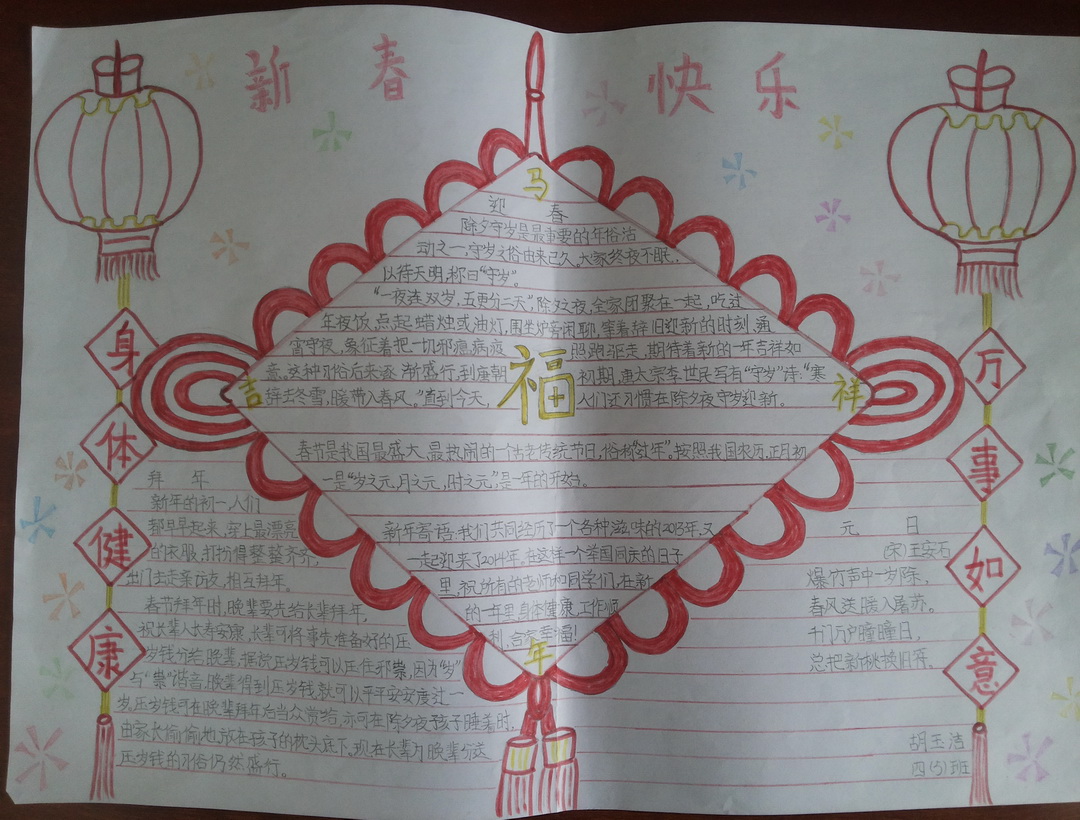 新春快乐
身体健康
万事如意
马
吉
福
祥
年
迎春
除夕守岁是最重要的年俗活
动之一,守岁之俗由来已久。大家终夜不眠,
以待天明,称曰“守岁”。
“一夜连双岁,五更分二天”除夕之夜,全家团聚在一起,吃过
年夜饭,点起蜡烛或油灯,围坐炉旁闲聊,等着辞旧迎新的时刻,通
宵守夜,象征着把一切邪瘟病疫照跑驱走,期待着新的一年吉祥如
意。这种习俗后来逐渐盛行,到唐朝初期,唐太宗李世民写有“守岁”诗:“寒
辞去冬雪,暖带入春风。”直到今天,人们还习惯在除夕夜守岁迎新。
春节是我国最盛大、最热闹的一个古老传统节日,俗称“过年”。按照我国农历,正月初
一是“岁之元,月之元,时之元”,是一年的开始。
新年寄语:我们共同经历了一个各种滋味的2013年,又
一起迎来了2014年。在这样一个举国同庆的日子
里,祝所有的老师和同学们,在新
的一年里,身体健康,工作顺
利,合家幸福!
拜年
新年的初一,人们
都早早起来,穿上最漂亮
的衣服,打扮得整整齐齐,
出门去走亲访友,相互拜年。
春节拜年时,晚辈要先给长辈拜年,
祝长辈人长寿安康,长辈可将事先准备好的压
岁钱分给晚辈,据说压岁钱可以压住邪祟,因为“岁”
与“祟”谐音,晚辈得到压岁钱就可以平平安安度过一
岁。压岁钱可在晚辈拜年后当众赏给,亦可在除夕夜孩子睡着时,
由家长偷偷地放在孩子的枕头底下,现在长辈为晚辈分送
压岁钱的习俗仍然盛行。
元日
(宋)王安石
爆竹声中一岁除,
春风送暖入屠苏。
千门万户曈曈日,
总把新桃换旧符。
胡玉洁
四(5)班